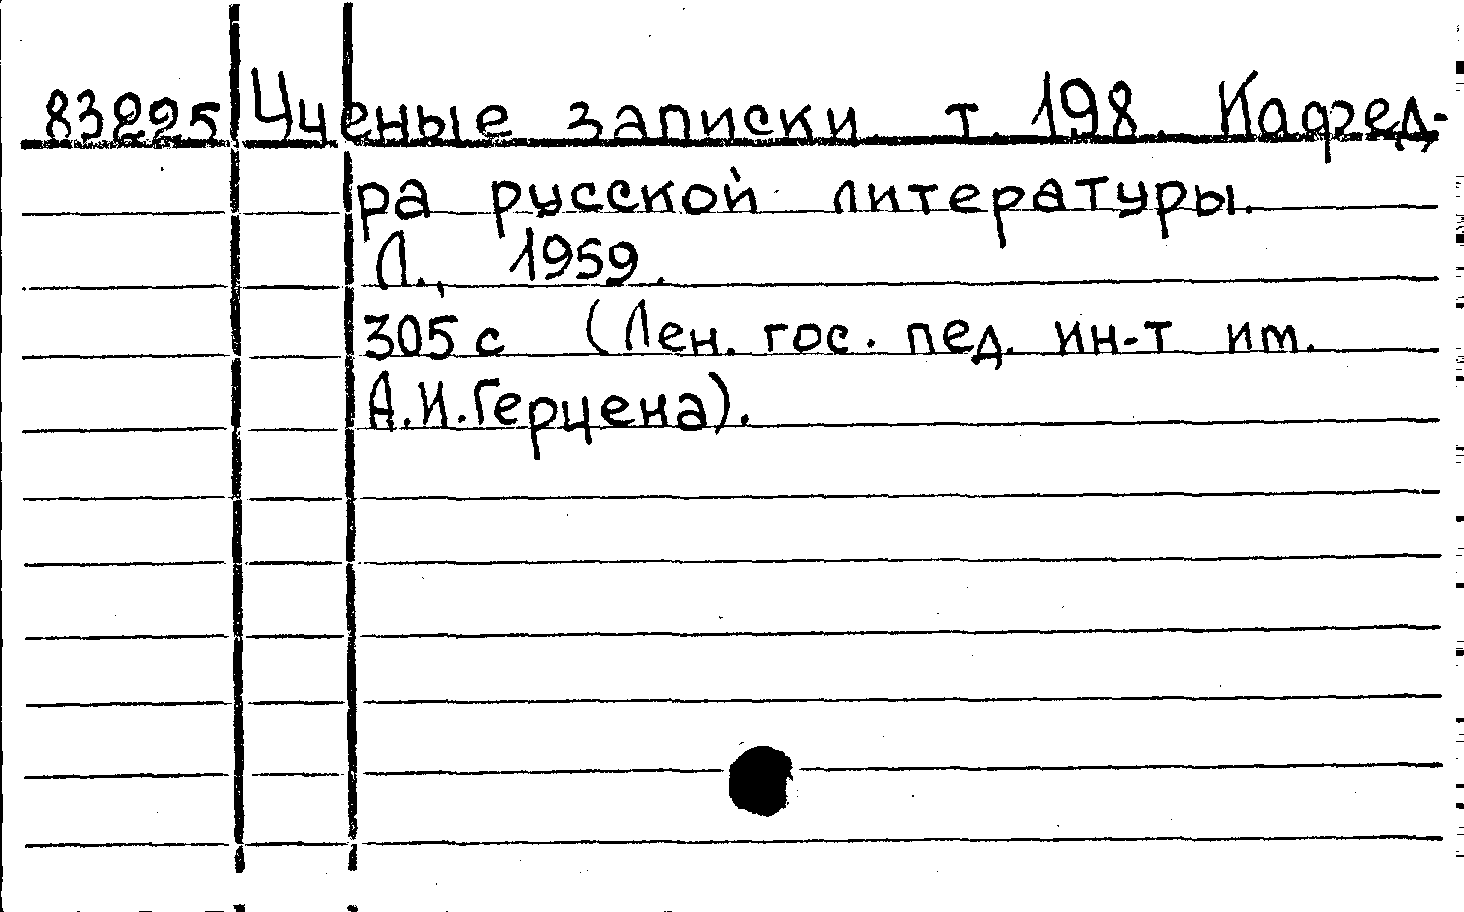 83225 Ученые записки т. 198. Кафед-
ра русской литературы.
Л., 1959.
305 с (Лен. гос. пед. ин-т им.
А.И.Герцена).